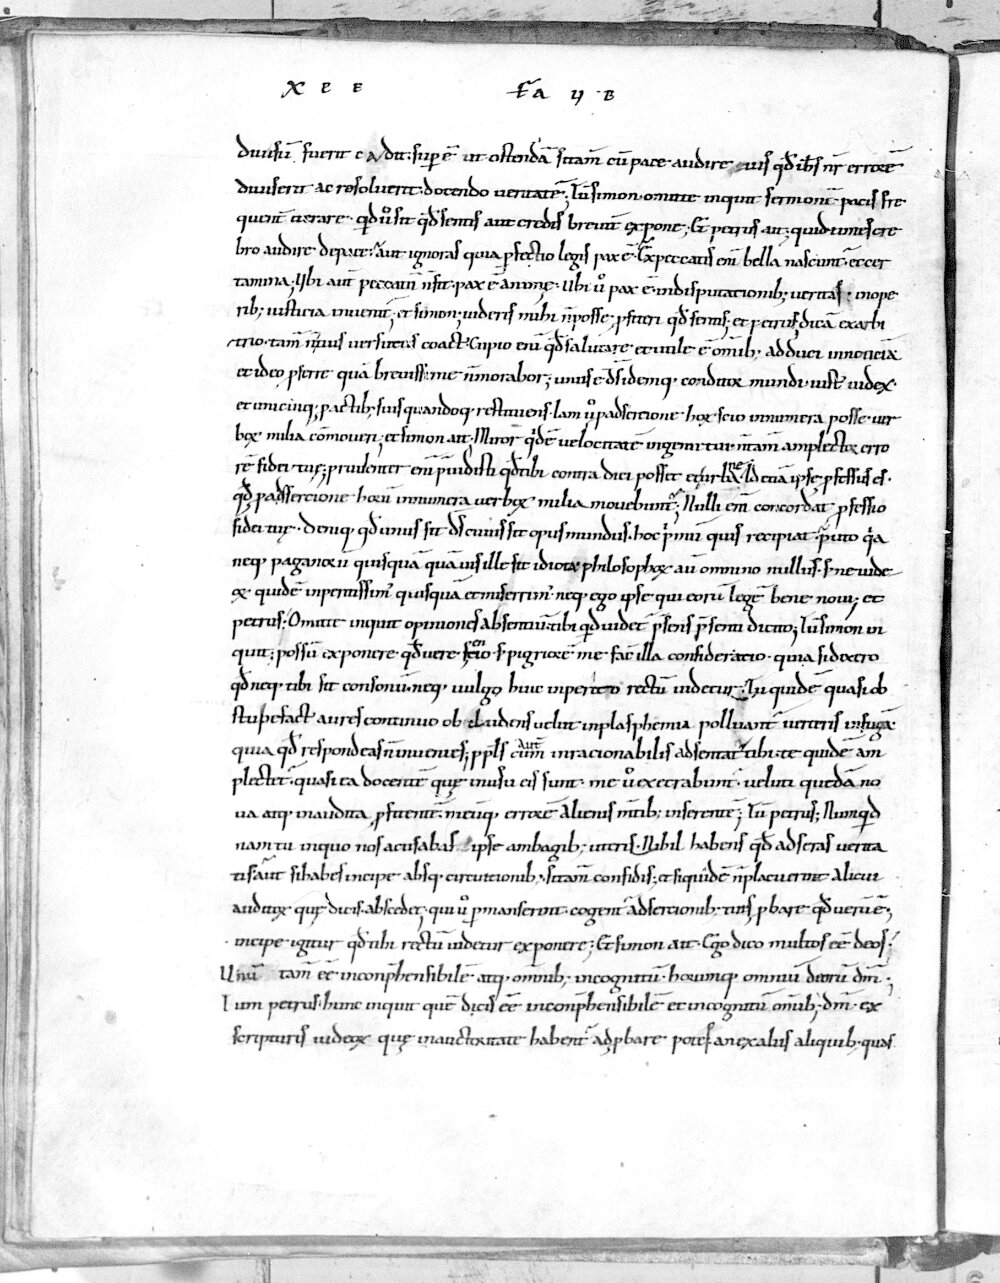 diuisū fuerit cadit. sup̄ ē ut ostendā sitam̄ cū pace audire uis qd̄ ih̄s nr̄ errorē
diuiserit ac resoluerit docendo ueritatē; Tū simon omitte inquit sermonē pacis fre
quent̄ iterare. qd̄ ū sit qd̄ sentis aut credis breuit̄ expone; Et petrus ait; quid uis cre
bro audire de pace. aut ignoras quia pfectio legis pax ē. Ex peccatis eni bella nascunt̄ et cer
tamina; Ubi aut̄ peccatū n̄ fit pax ē animę. Ubi ū pax ē in disputationib; ueritas; in ope
rib; iusticia inuenit̄; et simon; uideris mihi n̄ posse pfiteri qd̄ sentis; et petrus; dicā ex arbi
trio tam̄ n̄ tuis uersutiis coact̄. Cupio eni qd̄ salutare et utile ē omīb; adduci in noticiā
et ideo pferre quā breuissime n̄ morabor; unus ē d̄s idemq; conditor mundi iuste iudex.
et unicuiq; p actib; suis quandoq; restituens. Iam ū p adsercione hox scio innumera posse uer
box milia cōmoueri; et simon ait. Miror qdē uelocitatē ingenii tui n̄ tam̄ amplector erro
rē fidei tuę; prudenter eni puidisti qd̄ tibi contra dici posset et etiā ipse pfessus es.
qd̄ p adsercione hox innumera uerbox milia mouebunt̄. Nulli eni concordat pfessio
fidei tuę. Deniq; qd̄ unus sit d̄s cuius sit opus mundus. hoc p̄mū quis recipiat. puto qa
neq; paganox uł quisquā quāuis ille sit idiota philosophox aū omnino nullus. s; ne iude
ox quidē inpertissim̄ quisquā et miserrim̄ neq; ego ipse qui eorū legē bene noui; et
petrus; Omitte inquit opiniones absentiū. tibi qd̄ uidet̄ psens psenti dicito; Tū simon in
quit; possū exponere qd̄ uere sentio s; pigriorē me facit illa consideratio. quia si dixero
qd̄ neq; tibi sit consonū neq; uulgo huic inperito rectū uidetur. Tu quidē quasi ob
stupefact̄ aures continuo obcludens uelut in plasphemia polluant̄ uerteris in fugā
quia qd̄ respondeas n̄ inuenies; ppls aut cum inracionabilis adsentat̄ tibi. te quidē am
plectet̄. quasi ea docentē quę in usu eis sunt. me ū execrabunt̄. ueluti quedā no
ua atq; inaudita pfitentē. meūq; errorē alienis mtib; inserentē; Tū petrus; Numqd̄
nam tu in quo nos accusabas ipse ambagib; uteris. Nihil habens qd̄ adseras uerita
tis. aut si habes incipe absq; circuitionib; si tam̄ confidis; et siquidē n̄ placuerint alicui
auditox quę dicis. abscedet; qui ū pmanserint cogent̄ adsercionib; tuis pbare qd̄ uerū ē;
incipe igitur qd̄ tibi rectū uidetur exponere; Et simon ait. Ego dico multos eē deos.
Unū tam̄ eē inconp̄hensibilē atq; omīb; incognitū. horumq; omniū deorū d̄m;
Tum petrus. hunc inquit quē dicis eē inconp̄hensibilē et incognitū omīb; d̄m. ex
scripturis iudeox quę in auctoritate habent̄ adpbare potes. an ex aliis aliquib; quas